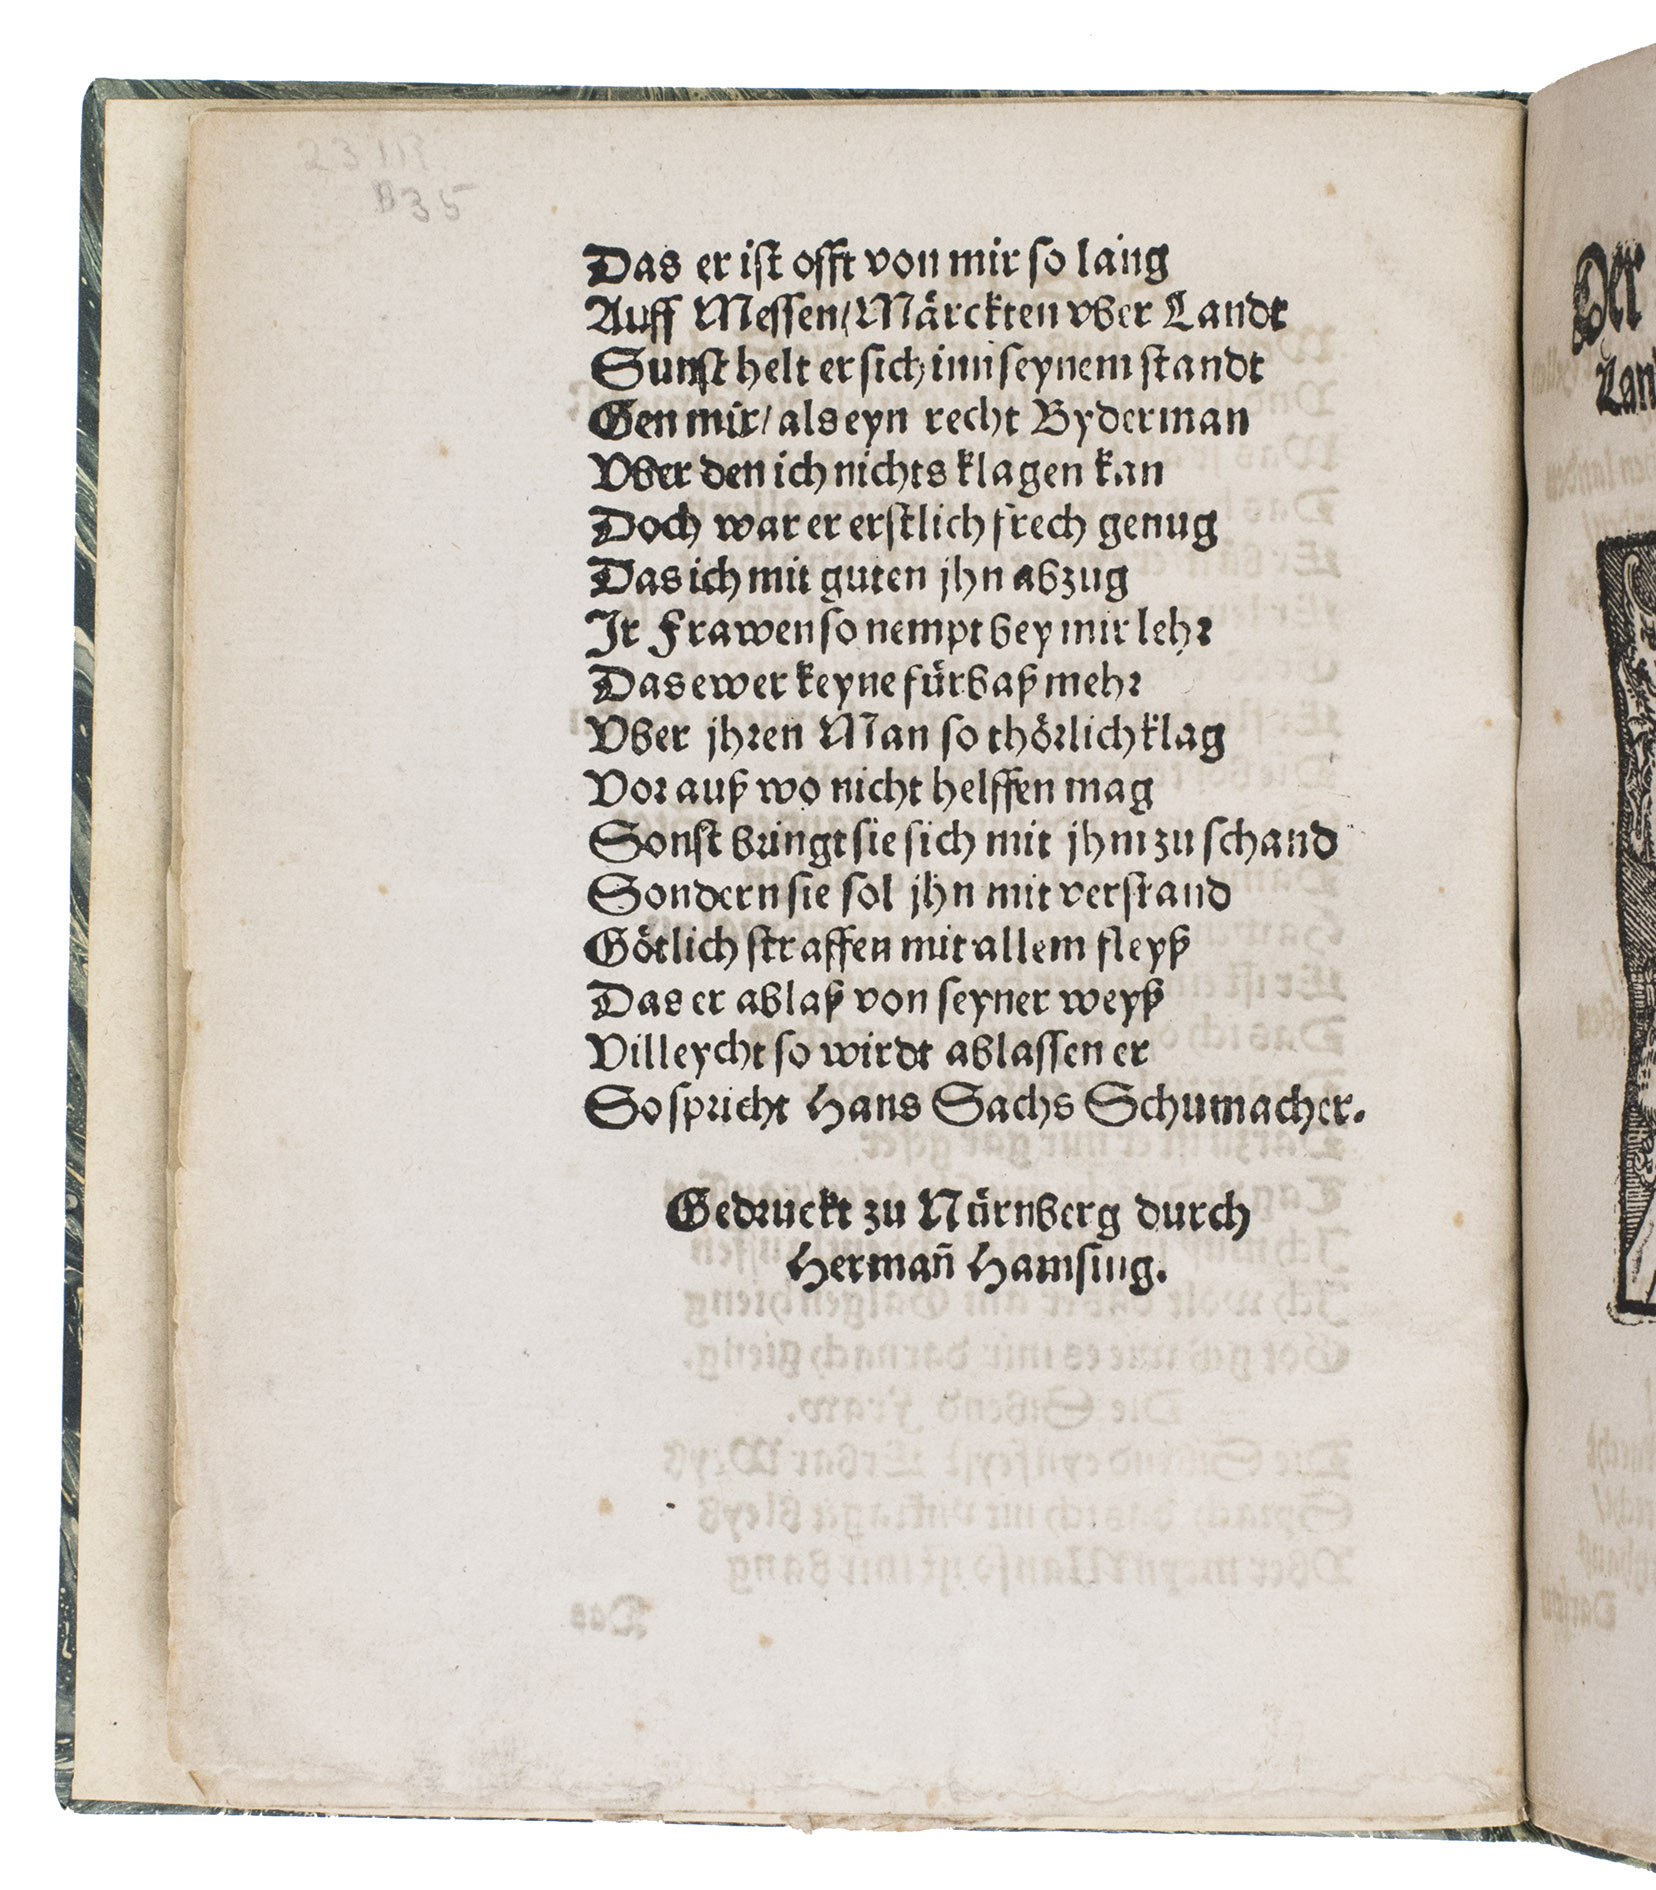 23 III
B35
Das er ist offt von mir so lang
Auff Messen/Märckten vber Landt
Sunst helt er sich inn seynem standt
Gen mir/ als eyn recht Byderman
Vber den ich nichts klagen kan
Doch war er erstlich frech genug
Das ich mit guten jhn abzug
Ir Frawen so nempt bey mir lehr
Das ewer keyne fürbaß mehr
Vber jhren Man so thörlich klag
Vor auß wo nicht helffen mag
Sonst bringt sie sich mit jhm zu schand
Sondern sie sol jhn mit verstand
Götlich straffen mit allem fleyß
Das er ablaß von seyner weyß
Villeycht so wirdt ablassen er
So spricht Hans Sachs Schumacher.
Gedruckt zu Nürnberg durch
Hermañ Hamsing.
Der